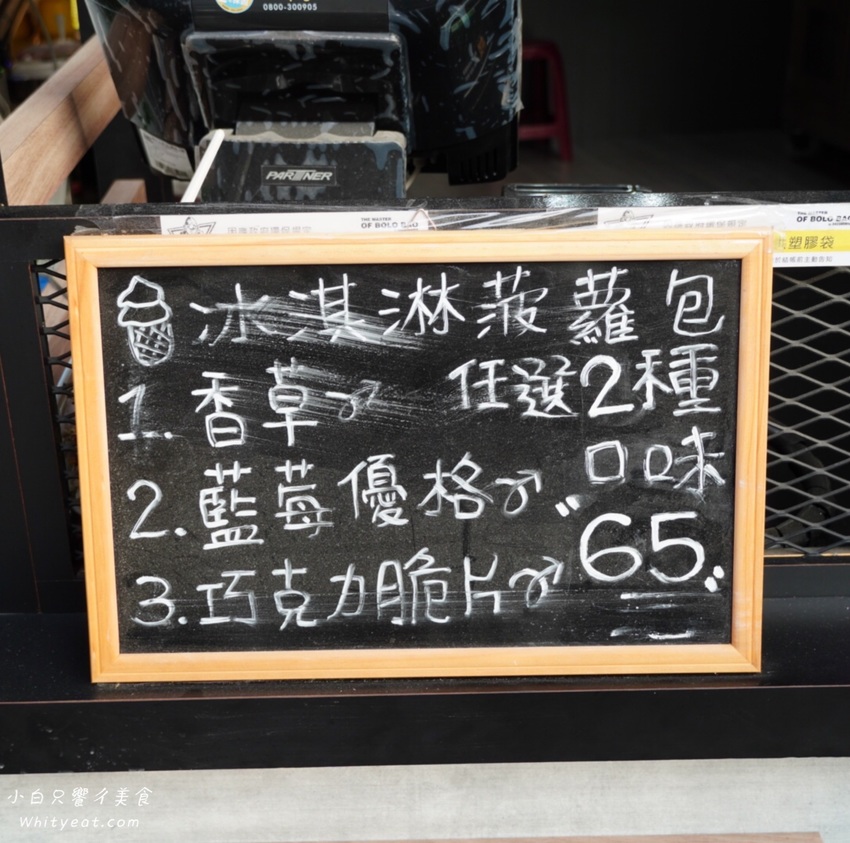 0800-300905
PARTNER
OF BOLO BAO
塑膠袋
冰淇淋菠蘿包
1. 香草 任選2種
口味
2. 藍莓優格
"65"
3. 巧克力脆片
小白只嚮ㄔ美食
Whityeat.com